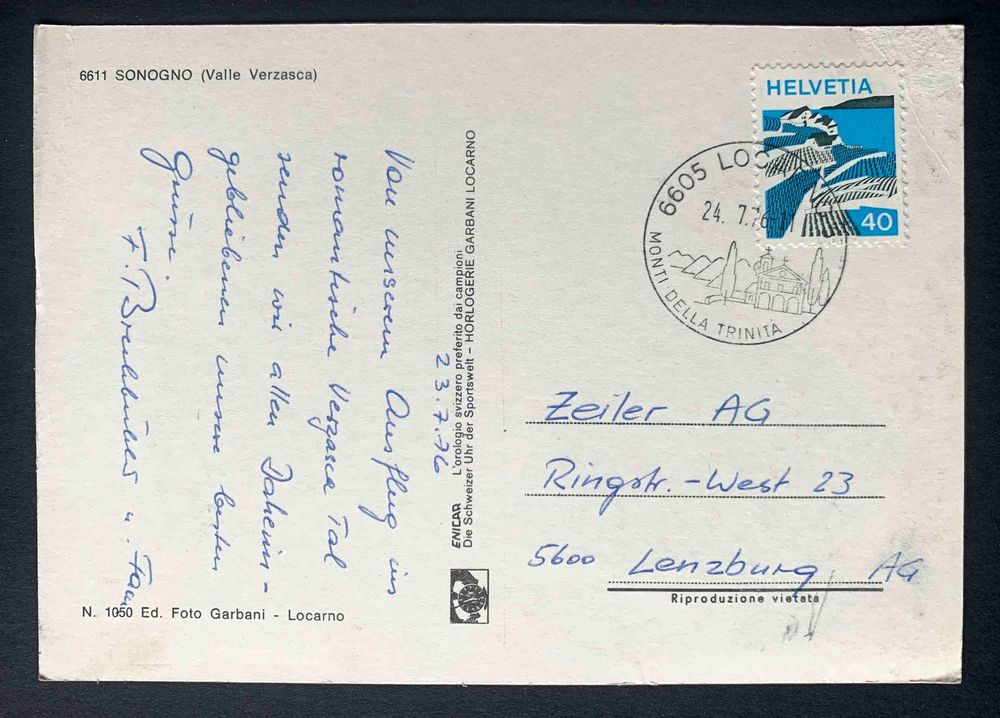 6611 SONOGNO (Valle Verzasca)
23.7.76
Von unserem Ausflug ins
romantische Verzasca Tal
senden wir allen Daheim-
gebliebenen unsere besten
Grüsse.
F. u. Fam
N. 1050 Ed. Foto Garbani - Locarno
ENICAR
L'orologio svizzero preferito dai campioni
Die Schweizer Uhr der Sportswelt - HORLOGERIE GARBANI LOCARNO
HELVETIA
40
6605 LOC
24. 7.76
MONTI DELLA TRINITÀ
Zeiler AG
Ringstr.-West 23
5600 Lenzburg AG
Riproduzione vietata